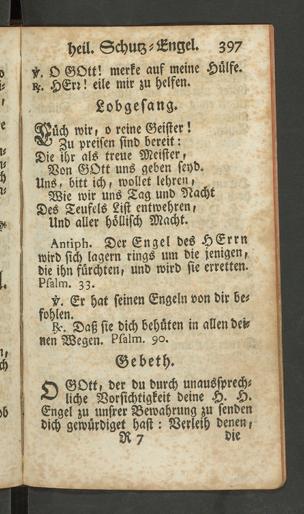 heil. Schutz-Engel. 397
℣. O GOtt! merke auf meine Hülfe.
℟. HErr! eile mir zu helfen.
Lobgesang.
Euch wir, o reine Geister!
Zu preisen sind bereit:
Die ihr als treue Meister,
Von GOtt uns geben seyd.
Uns, bitt ich, wollet lehren,
Wie wir uns Tag und Nacht
Des Teufels List entwehren,
Und aller höllisch Macht.
Antiph. Der Engel des HErrn
wird sich lagern rings um die jenigen,
die ihn fürchten, und wird sie erretten.
Psalm. 33.
℣. Er hat seinen Engeln von dir be-
fohlen.
℟. Daß sie dich behüten in allen dei-
nen Wegen. Psalm. 90.
Gebeth.
O GOtt, der du durch unaussprech-
liche Vorsichtigkeit deine H. H.
Engel zu unsrer Bewahrung zu senden
dich gewürdiget hast: Verleih denen,
R 7 die